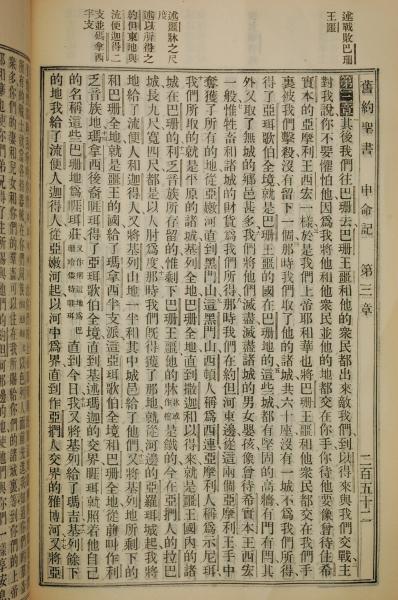 述戰敗巴珊
王噩
述噩牀之尺
度
述以所得之
約但東地與
流便迦得二
支並瑪拿西
半支
舊約聖書 申命記 第三章 二百五十二
第三章其後我們往巴珊去巴珊王噩和他的衆民都出來敵我們到以得來與我們交戰主
對我說你不要懼怕他因爲我將他和他衆民並他的地都交在你手你待他要像曾待住希
實本的亞摩利王西宏一樣於是我們上帝耶和華也將巴珊王噩和他衆民都交在我們手
裏被我們擊殺沒有留下一個那時我們取了他的諸城共六十座沒有一城不爲我們所得
得了亞珥歌伯全境就是巴珊王噩的國在巴珊地的這些城都有堅固的高牆有門有閂其
外又取了無城的鄉邑甚多我們將他們滅盡滅盡諸城的男女嬰孩像曾待希實本王西宏
一般惟牲畜和諸城的財貨爲我們所得那時我們在約但河東邊從這兩個亞摩利王手中
奪獲了所有的地從亞嫩河直到黑門山這黑門山西頓人稱爲西連亞摩利人稱爲示尼珥
我們所取的就是平原的諸城基列全地巴珊全地直到撒迦和以得來就是噩王國內的諸
城在巴珊的利乏音族所存留的惟剩下巴珊王噩他的牀是鐵的今在亞捫人的拉巴
城長九尺寬四尺都是以人肘爲度那時我們旣得獲了那地就從河邊的亞羅珥城起我將
地給了流便人迦得人又將基列山地一半和其中城邑給了他們又將基列地所剩下的
和巴珊全地就是噩王的國給了瑪拿西半支派這亞珥歌伯全境和巴珊全地從前叫作利
乏音族地瑪拿西後裔睚珥得了亞珥歌伯全境直到基述瑪迦的交界睚珥就照着他自己
的名稱這些巴珊地爲睚珥莊直到今日我又將基列給了瑪吉基列餘下
的地我給了流便人迦得人從亞嫩河起以河中爲界直到作亞捫人交界的雅博河又將亞